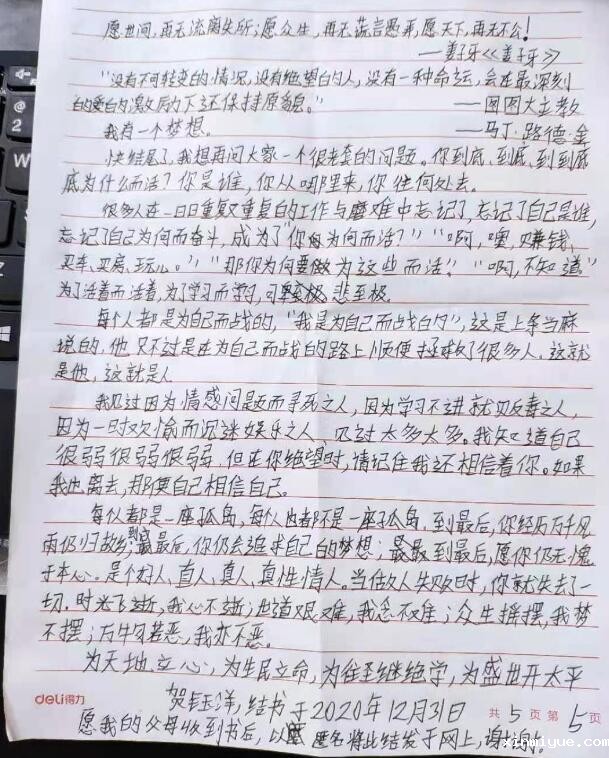 愿世间,再无流离失所;愿众生,再无谎言愚弄,愿天下,再无不公!
——姜子牙《姜子牙》
"没有不可转变的情况,没有绝望的人,没有一种命运,会在最深刻
的爱的激励下还保持原貌。" ——图图大主教
我有一个梦想. ——马丁·路德·金
快结尾了,我想再问大家一个很老套的问题。你到底、到底、到到底
底为什么而活?你是谁,你从哪里来,你往何处去。
很多人在一日日重复又重复的工作与磨难中忘记了,忘记了自己是谁,
忘记了自己为何而奋斗,成为了"你为何而活?""啊,噢,赚钱、
买车、买房、玩儿。""那你为何要为这些而活?""啊,不知道"
为了活着而活着,为了学习而学习,可至极,悲至极.
每个人都是为自己而战的,"我是为自己而战的",这是上条当麻
说的,他只不过是在为自己而战的路上顺便拯救了很多人,这就
是他,这就是人
我见过因为情感问题而寻死之人,因为学习不进就见弃毒之人,
因为一时欢愉而沉迷娱乐之人,见过太多太多。我知道自己
很弱很弱很弱,但在你绝望时,请记住我还相信着你。如果
我也离去,那便自己相信自己。
每人都是一座孤岛,每个人也都不是一座孤岛,到最后,你经历万千风
雨仍归故乡;到最最后,你仍会追求自己的梦想;最最到最后,愿你仍无愧
于本心.是个好人,直人,真人,真性情人。当你失败时,你就失去了一
切.时光飞逝,我心不逝;世道艰难,我念不难;众生摇摆,我梦
不摆;万物若恶,我亦不恶。
为天地立心,为生民立命,为往圣继绝学,为盛世开太平
deli得力 贺钰洋,结书于2020年12月31日 共5页第5页
愿我的父母收到书后,以匿名将此结发于网上,谢谢。
xinmiyue.com